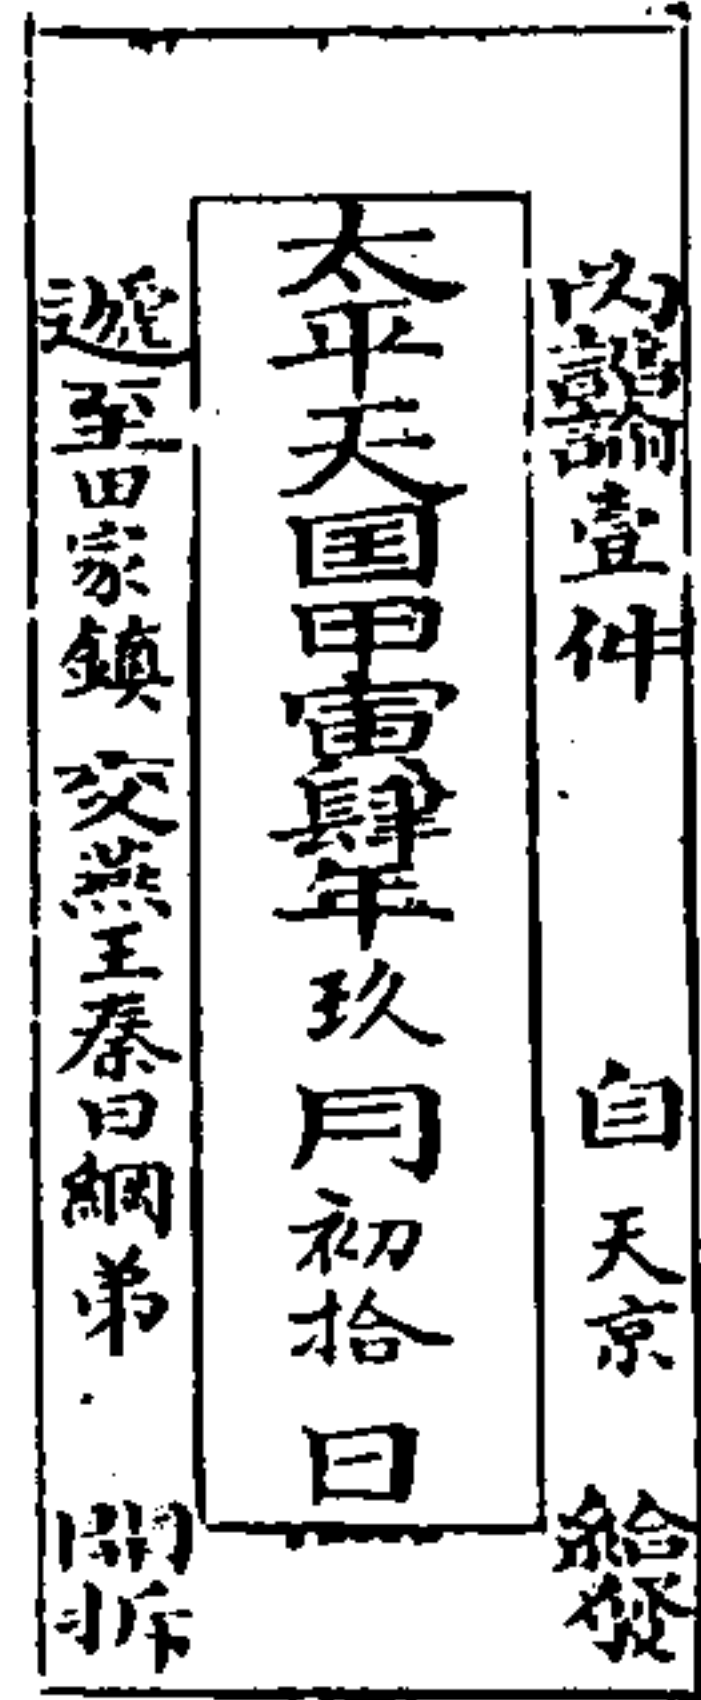 內誥諭壹件 自 天京 給發
太平天囯甲寅肆年玖月初拾日
遞至田家鎮 交燕王秦日綱弟 開拆